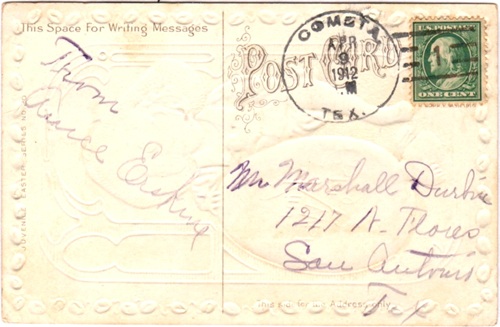 This Space For Writing Messages
From
Erskine
POST CARD
COMSTA
APR
9
1912
M
TEX.
U.S. POSTAGE
ONE CENT
Mr Marshall Durbin
1217 A. Flores
San Antonio
Tex
This side for the Address only
JUVENILE EASTER SERIES NO.